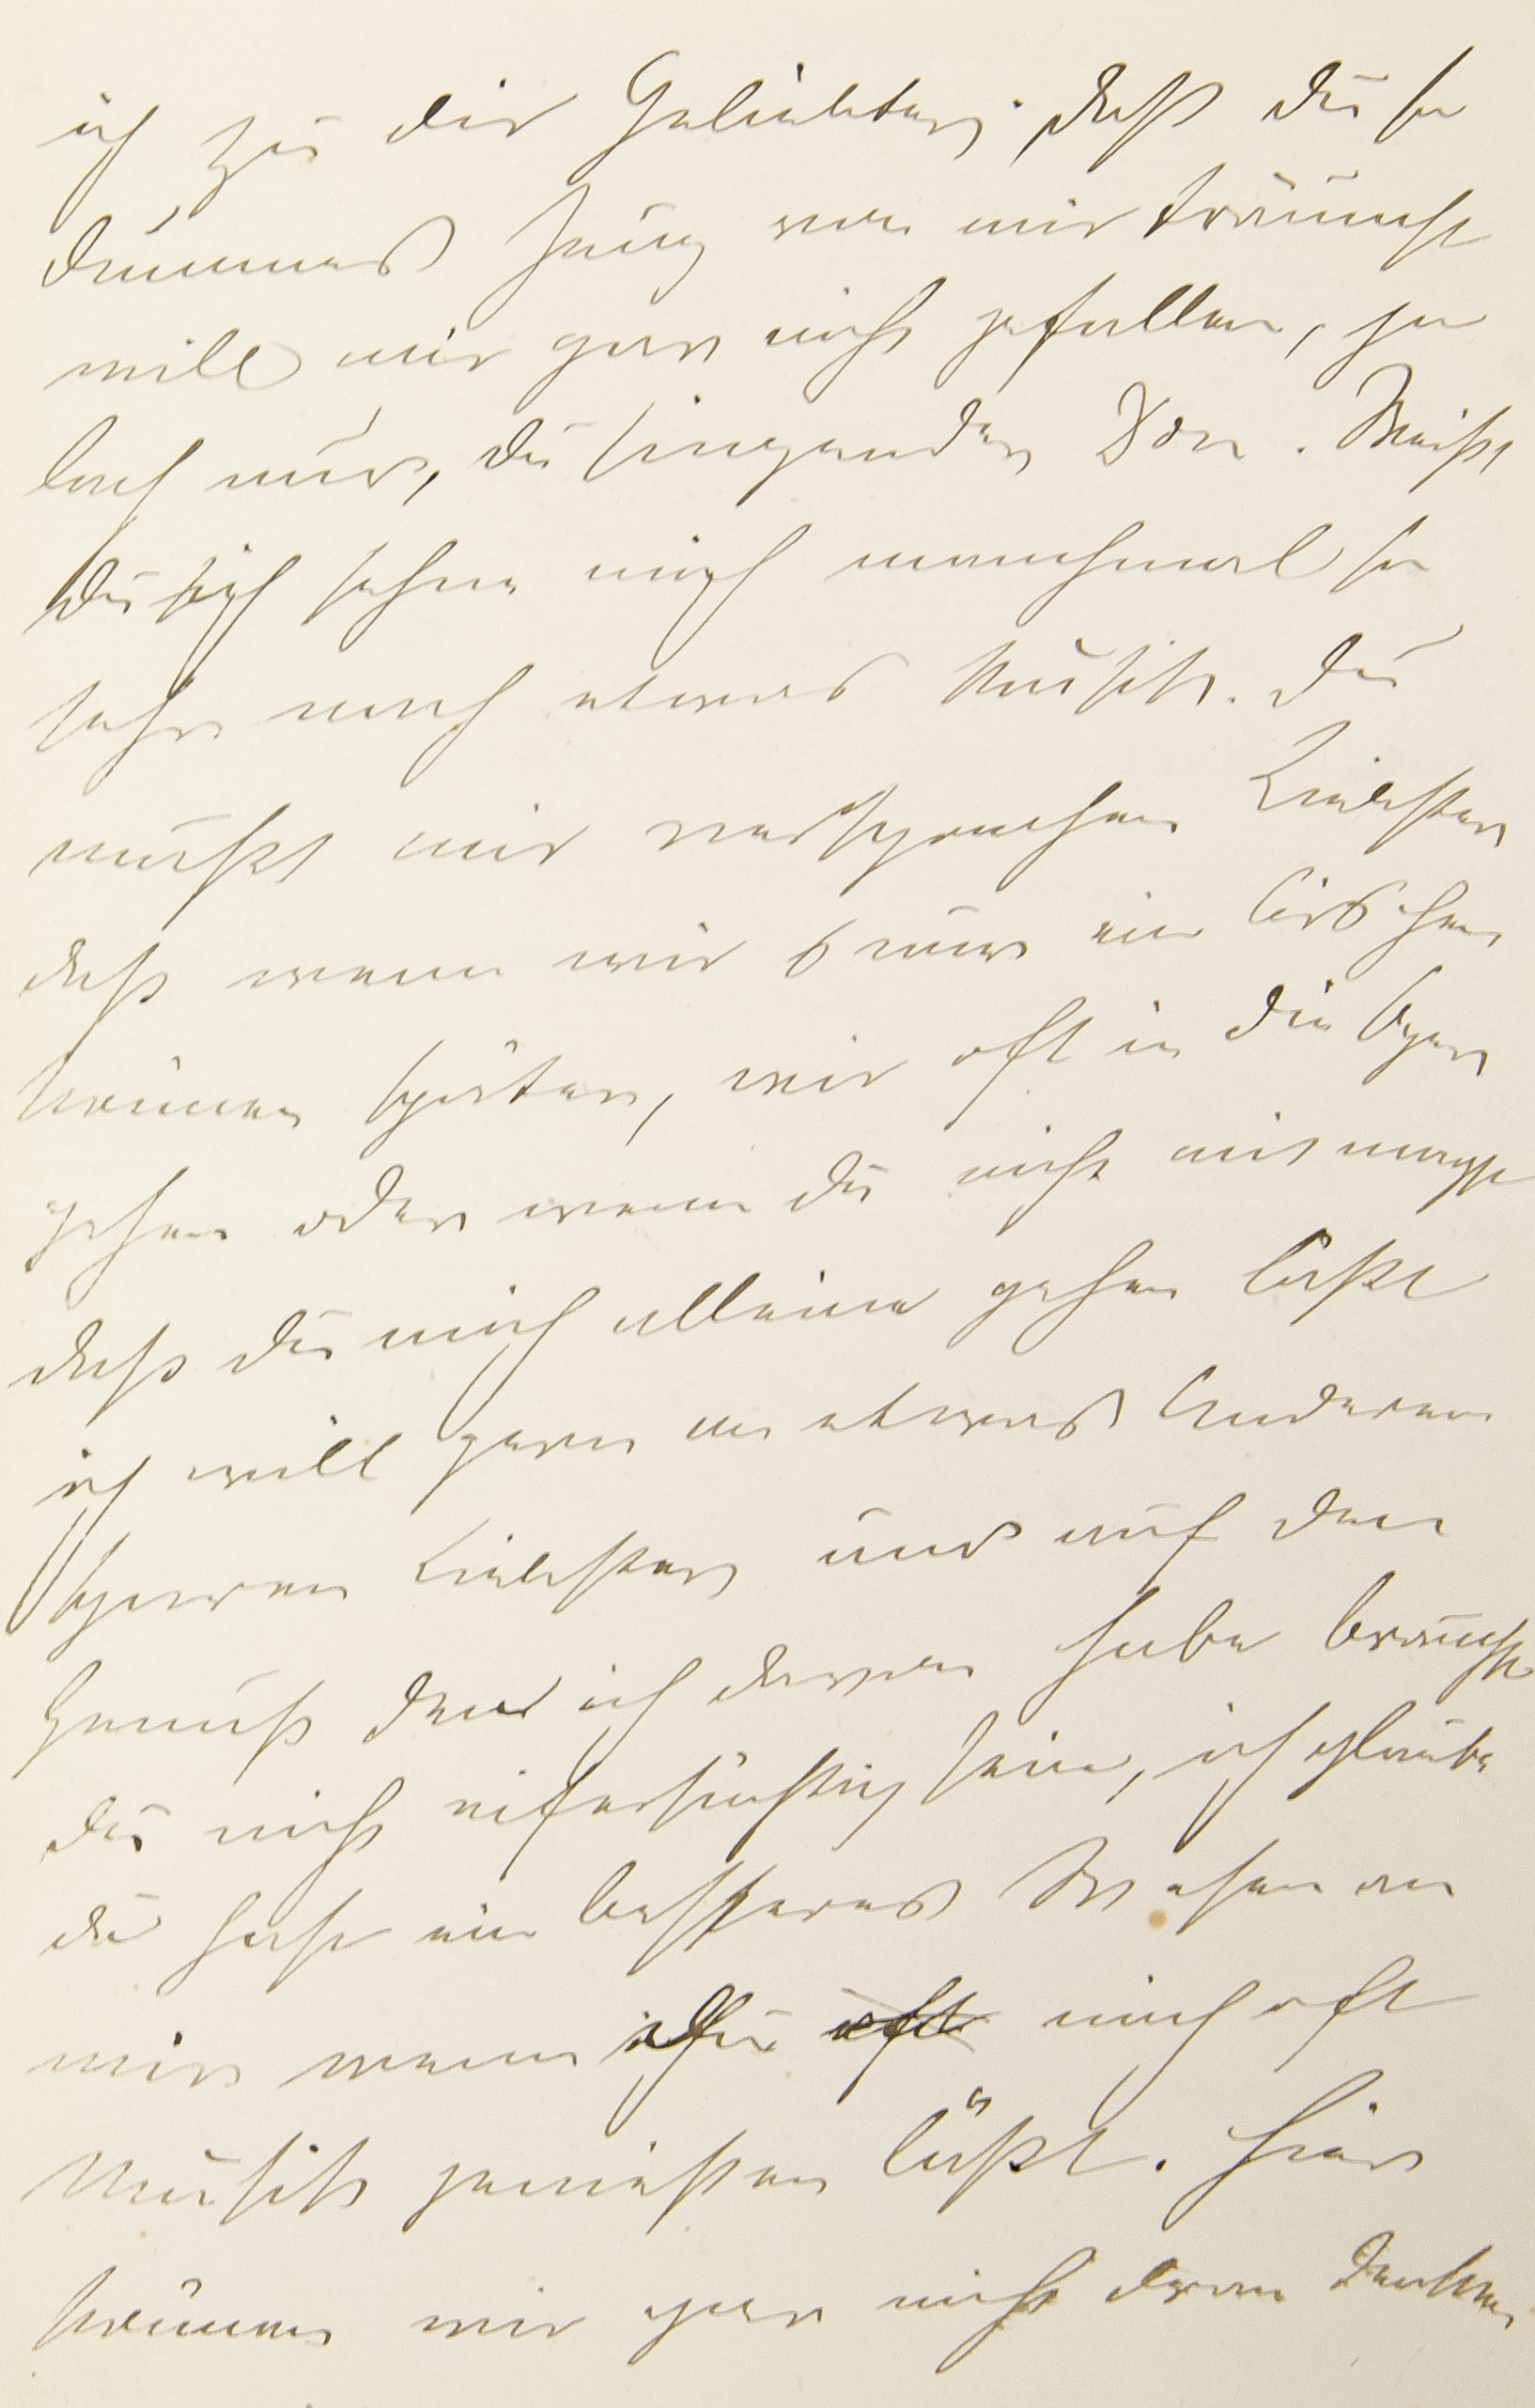 ich zu dir Geliebter, daß du so
dummes Zeug von mir träumst
will mir gar nicht gefallen, ja
lach nur, du singender Don. Weißt
du ich sehne mich manchmal so
sehr nach etwas Musik. Du
mußt mir versprechen Liebster
daß wenn wir nur ein bischen
können später, wir oft in die Oper
gehen oder wenn du nicht mit magst
daß du mich alleine gehen läßt
ich will gern an etwas Anderem
sparen Liebster und auf den
Genuß den ich davon habe brauchst
du nicht eifersüchtig sein, ich glaube
du hast ein besseres Wesen an
mir wenn du oft mich oft
Musik genießen läßt. Hier
können wir gar nicht dran denken